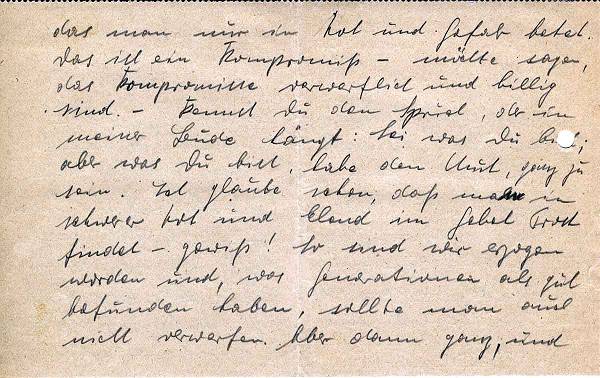 das man nur in Not und Gefahr betet.
Das ist ein Kompromiß – möchte sagen,
das Kompromisse verwerflich und billig
sind. – Kennst Du den Spruch, der in
meiner Bude hängt: Sei was Du bist;
aber was Du bist, habe den Mut, ganz zu
sein. Ich glaube schon, daß man in
schwerer Not und Elend im Gebet Trost
findet – gewiß! So sind wir erzogen
worden und, was Generationen als gut
befunden haben, sollte man auch
nicht verwerfen. Aber dann ganz, und